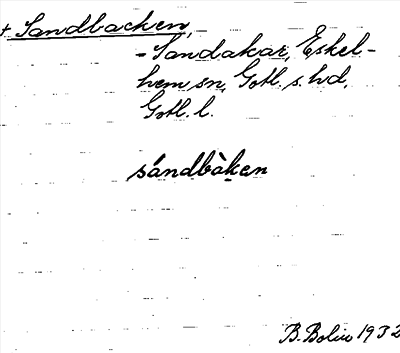 + Sandbacken,
- Sandakar, Eskel-
hem sn, Gotl. s. hd.
Gotl. l.
sándbàken
B. Bolin 1932